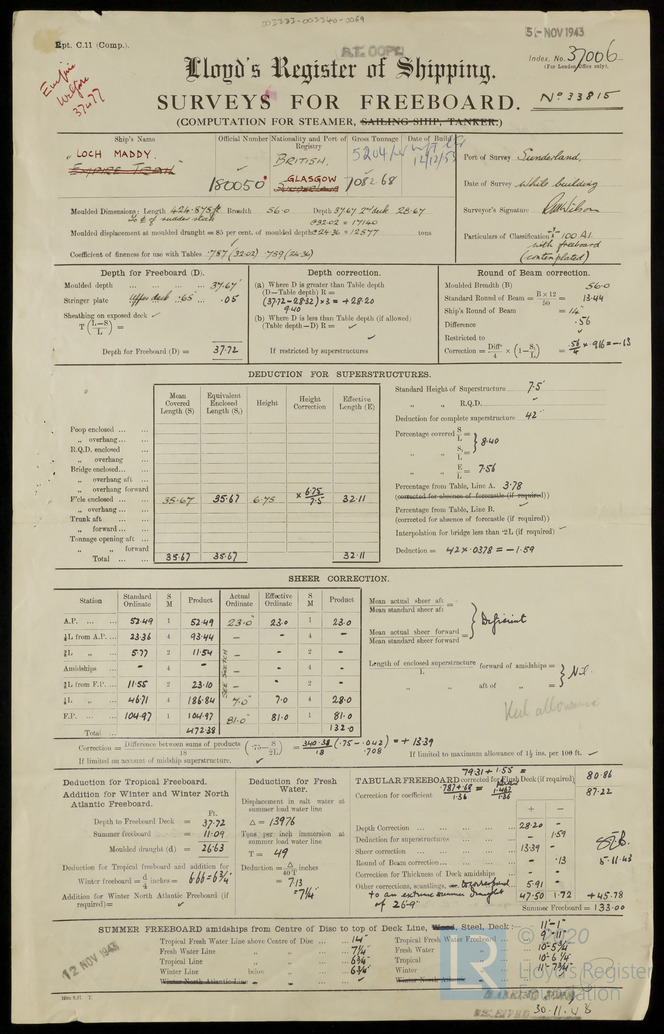 003333-003340-0069
Rpt. C.11 (Comp.).
5 - NOV 1943
Index. No. 37006
(For London Office only).
Empire
Welfare
37077
Lloyd's Register of Shipping.
SURVEYS FOR FREEBOARD.
No 33815
(COMPUTATION FOR STEAMER, SAILING SHIP, TANKER.)
Ship's Name
Official Number
Nationality and Port of Registry
Gross Tonnage
Date of Build
LOCH MADDY.
180050
BRITISH.
GLASGOW
7082.68
Port of Survey Sunderland,
Date of Survey while building
Surveyor's Signature
Particulars of Classification 100 A1.
with freeboard
(contemplated)
Moulded Dimensions: Length 424.875 ft Breadth 56.0 Depth 37.67 2nd deck 28.67
Moulded displacement at moulded draught = 85 per cent. of moulded depth @ 24.36 = 12577 tons
@32.02 = 17140
Coefficient of fineness for use with Tables .787 (32.02) .759 (24.36)
Depth for Freeboard (D).
Moulded depth ... 37.67
Stringer plate Upper deck .65 .05
Sheathing on exposed deck
T (L-S / L) =
Depth for Freeboard (D) = 37.72
Depth correction.
(a) Where D is greater than Table depth
(D—Table depth) R =
(37.72-28.32) × 3 = + 28.20
9.40
(b) Where D is less than Table depth (if allowed)
(Table depth—D) R =
If restricted by superstructures
Round of Beam correction.
Moulded Breadth (B) 56.0
Standard Round of Beam = B × 12 / 50 = 13.44
Ship's Round of Beam = 14
Difference .56
Restricted to
Correction = Diff / 4 × (1 - S₁/L) = .56/4 × .916 = -.13
DEDUCTION FOR SUPERSTRUCTURES.
Mean Covered Length (S)
Equivalent Enclosed Length (S₁)
Height
Height Correction
Effective Length (E)
Poop enclosed
„ overhang
R.Q.D. enclosed
„ overhang
Bridge enclosed
„ overhang aft
„ overhang forward
F'cle enclosed 35.67 35.67 6.75 × 6.75/7.5 32.11
„ overhang
Trunk aft
„ forward
Tonnage opening aft
„ „ forward
Total 35.67 35.67 32.11
Standard Height of Superstructure 7.5
„ „ R.Q.D.
Deduction for complete superstructure 42
Percentage covered S/L =
„ „ S₁/L = 8.40
„ „ E/L = 7.56
Percentage from Table, Line A. 3.78
(corrected for absence of forecastle (if required))
Percentage from Table, Line B.
(corrected for absence of forecastle (if required))
Interpolation for bridge less than ·2L (if required)
Deduction = 42 × .0378 = - 1.59
SHEER CORRECTION.
Station
Standard Ordinate
S M
Product
Actual Ordinate
Effective Ordinate
S M
Product
A.P. 52.49 1 52.49 23.0 23.0 1 23.0
⅙L from A.P. 23.36 4 93.44 - - 4 -
⅓L „ 5.77 2 11.54 - - 2 -
Amidships - 4 - - - 4 -
⅓L from F.P. 11.55 2 23.10 - - 2 -
⅙L „ 46.71 4 186.84 7.0 7.0 4 28.0
F.P. 104.97 1 104.97 81.0 81.0 1 81.0
Total 472.38 132.0
SEE SKETCH
Mean actual sheer aft
Mean standard sheer aft =
Mean actual sheer forward
Mean standard sheer forward =
Deficient
Length of enclosed superstructure / L forward of amidships =
„ „ aft of „ =
Nil.
Keel allowance
Correction = Difference between sums of products / 18 (·75 - S/2L) = 340.38/18 (.75 - .042) = + 13.39
.708
If limited on account of midship superstructure.
If limited to maximum allowance of 1½ ins. per 100 ft.
Deduction for Tropical Freeboard.
Addition for Winter and Winter North Atlantic Freeboard.
Ft.
Depth to Freeboard Deck = 37.72
Summer freeboard = 11.09
Moulded draught (d) = 26.63
Deduction for Tropical freeboard and addition for
Winter freeboard = d/4 inches = 6.66 = 6¾
Addition for Winter North Atlantic Freeboard (if required) =
Deduction for Fresh Water.
Displacement in salt water at summer load water line
Δ = 13976
Tons per inch immersion at summer load water line
T = 49
Deduction = Δ/40T inches
= 7.13
= 7¼
79.31 + 1.55 =
TABULAR FREEBOARD corrected for Flush Deck (if required) 80.86
Correction for coefficient .787 + .68 / 1.36 = 1.467 / 1.36 87.22
+ -
Depth Correction 28.20 -
Deduction for superstructures - 1.59
Sheer correction 13.39 -
Round of Beam correction - .13
Correction for Thickness of Deck amidships - -
Other corrections, scantlings, to correspond 5.91 -
to an extreme summer draught
of 26'-9"
47.50 1.72 + 45.78
Summer Freeboard = 133.00
5.11.43
SUMMER FREEBOARD amidships from Centre of Disc to top of Deck Line, Wood, Steel, Deck:— 11'-1"
Tropical Fresh Water Line above Centre of Disc 14"
Fresh Water Line „ „ 7¼
Tropical Line „ „ 6¾
Winter Line below „ 6¾
Winter North Atlantic Line „ „
Tropical Fresh Water Freeboard 9'-11"
Fresh Water „ 10'-5¾"
Tropical „ 10'-6¼"
Winter „ 11'-7¾"
Winter North Atlantic „
12 NOV 1943
30.11.43
LR
© 2020
Lloyd's Register
Foundation